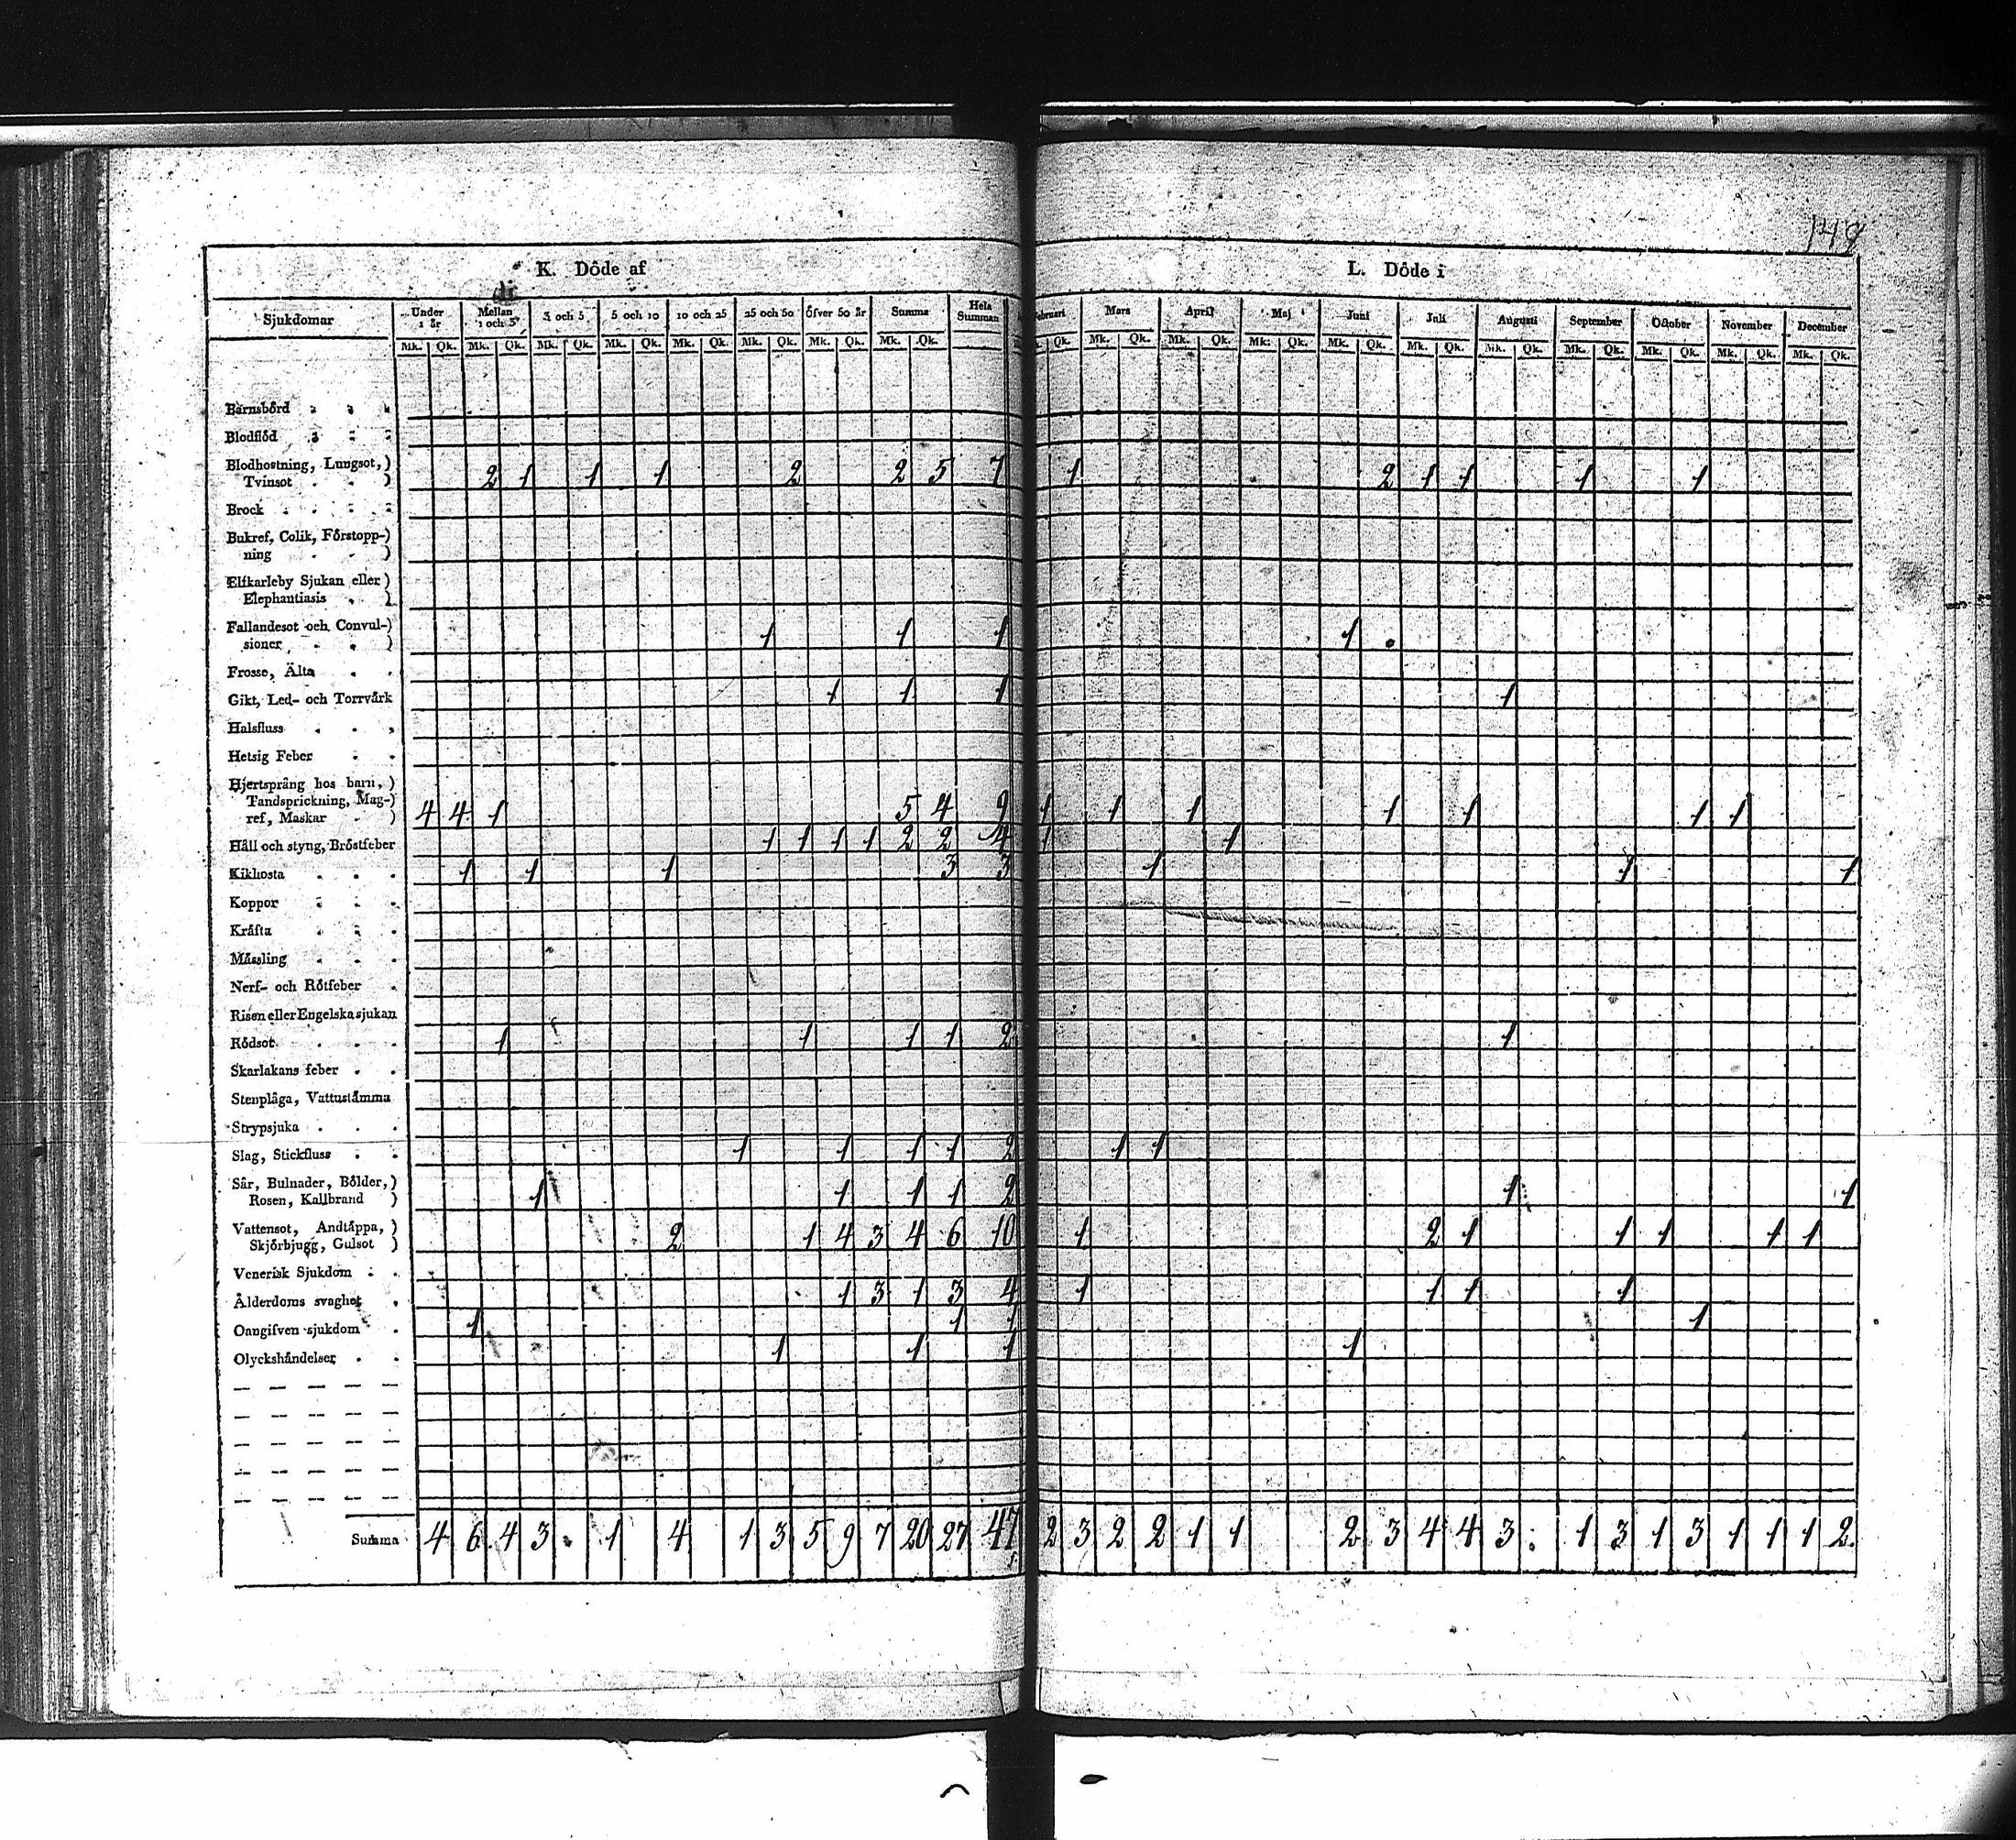 149
K. Döde af L. Döde i
Sjukdomar Under 1 år Mellan 1 och 3 3 och 5 5 och 10 10 och 25 25 och 50 öfver 50 år Summa Hela Summan Februari Mars April Maj Juni Juli Augusti September October November December
Mk. Qk. Mk. Qk. Mk. Qk. Mk. Qk. Mk. Qk. Mk. Qk. Mk. Qk. Mk. Qk. Qk. Mk. Qk. Mk. Qk. Mk. Qk. Mk. Qk. Mk. Qk. Mk. Qk. Mk. Qk. Mk. Qk. Mk. Qk. Mk. Qk.
Barnsbörd
Blodflöd
Blodhostning, Lungsot,)
Tvinsot ) 2 1 1 1 2 2 5 7 1 2 1 1 1 1
Brock
Bukref, Colik, Förstopp-)
ning )
Elfkarleby Sjukan eller)
Elephantiasis )
Fallandesot och Convul-)
sioner ) 1 1 1 1
Frosse, Älta
Gikt, Led- och Torrvärk 1 1 1 1
Halsfluss
Hetsig Feber
Hjertsprång hos barn,)
Tandsprickning, Mag-)
ref, Maskar ) 4 4 1 5 4 9 1 1 1 1 1 1 1
Håll och styng, Bröstfeber 1 1 1 1 2 2 4 1 1
Kikhosta 1 1 1 3 3 1 1 1
Koppor
Kräfta
Mässling
Nerf- och Rötfeber
Risen eller Engelska sjukan
Rödsot 1 1 1 1 2 1
Skarlakans feber
Stenplåga, Vattustämma
Strypsjuka
Slag, Stickfluss 1 1 1 1 2 1 1
Sår, Bulnader, Bölder,)
Rosen, Kallbrand ) 1 1 1 1 2 1 1
Vattensot, Andtäppa,)
Skjörbjugg, Gulsot ) 2 1 4 3 4 6 10 1 2 1 1 1 1 1
Venerisk Sjukdom
Ålderdoms svaghet 1 3 1 3 4 1 1 1 1
Oangifven sjukdom 1 1 1 1
Olyckshändelser 1 1 1 1
Summa 4 6 4 3 1 4 1 3 5 9 7 20 27 47 2 3 2 2 1 1 2 3 4 4 3 1 3 1 3 1 1 1 2